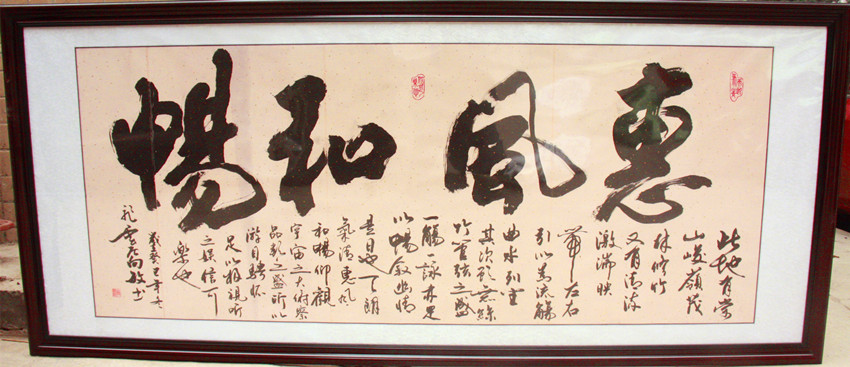 惠風和暢
此地有崇
山峻嶺茂
林修竹
又有清流
激湍映
帶左右
引以為流觴
曲水列坐
其次雖無絲
竹管弦之盛
一觴一詠亦足
以暢敘幽情
是日也天朗
氣清惠風
和暢仰觀
宇宙之大俯察
品類之盛所以
游目騁懷
足以極視聽
之娛信可
樂也
歲癸巳年